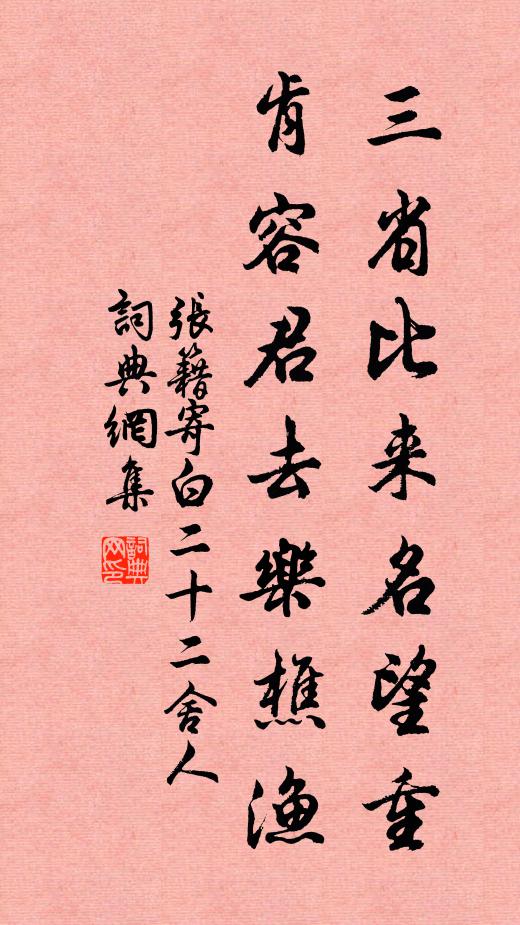 三省比来名望重
肯容君去樂樵漁
張籍寄白二十二舍人
詞典網集
詞典
网印